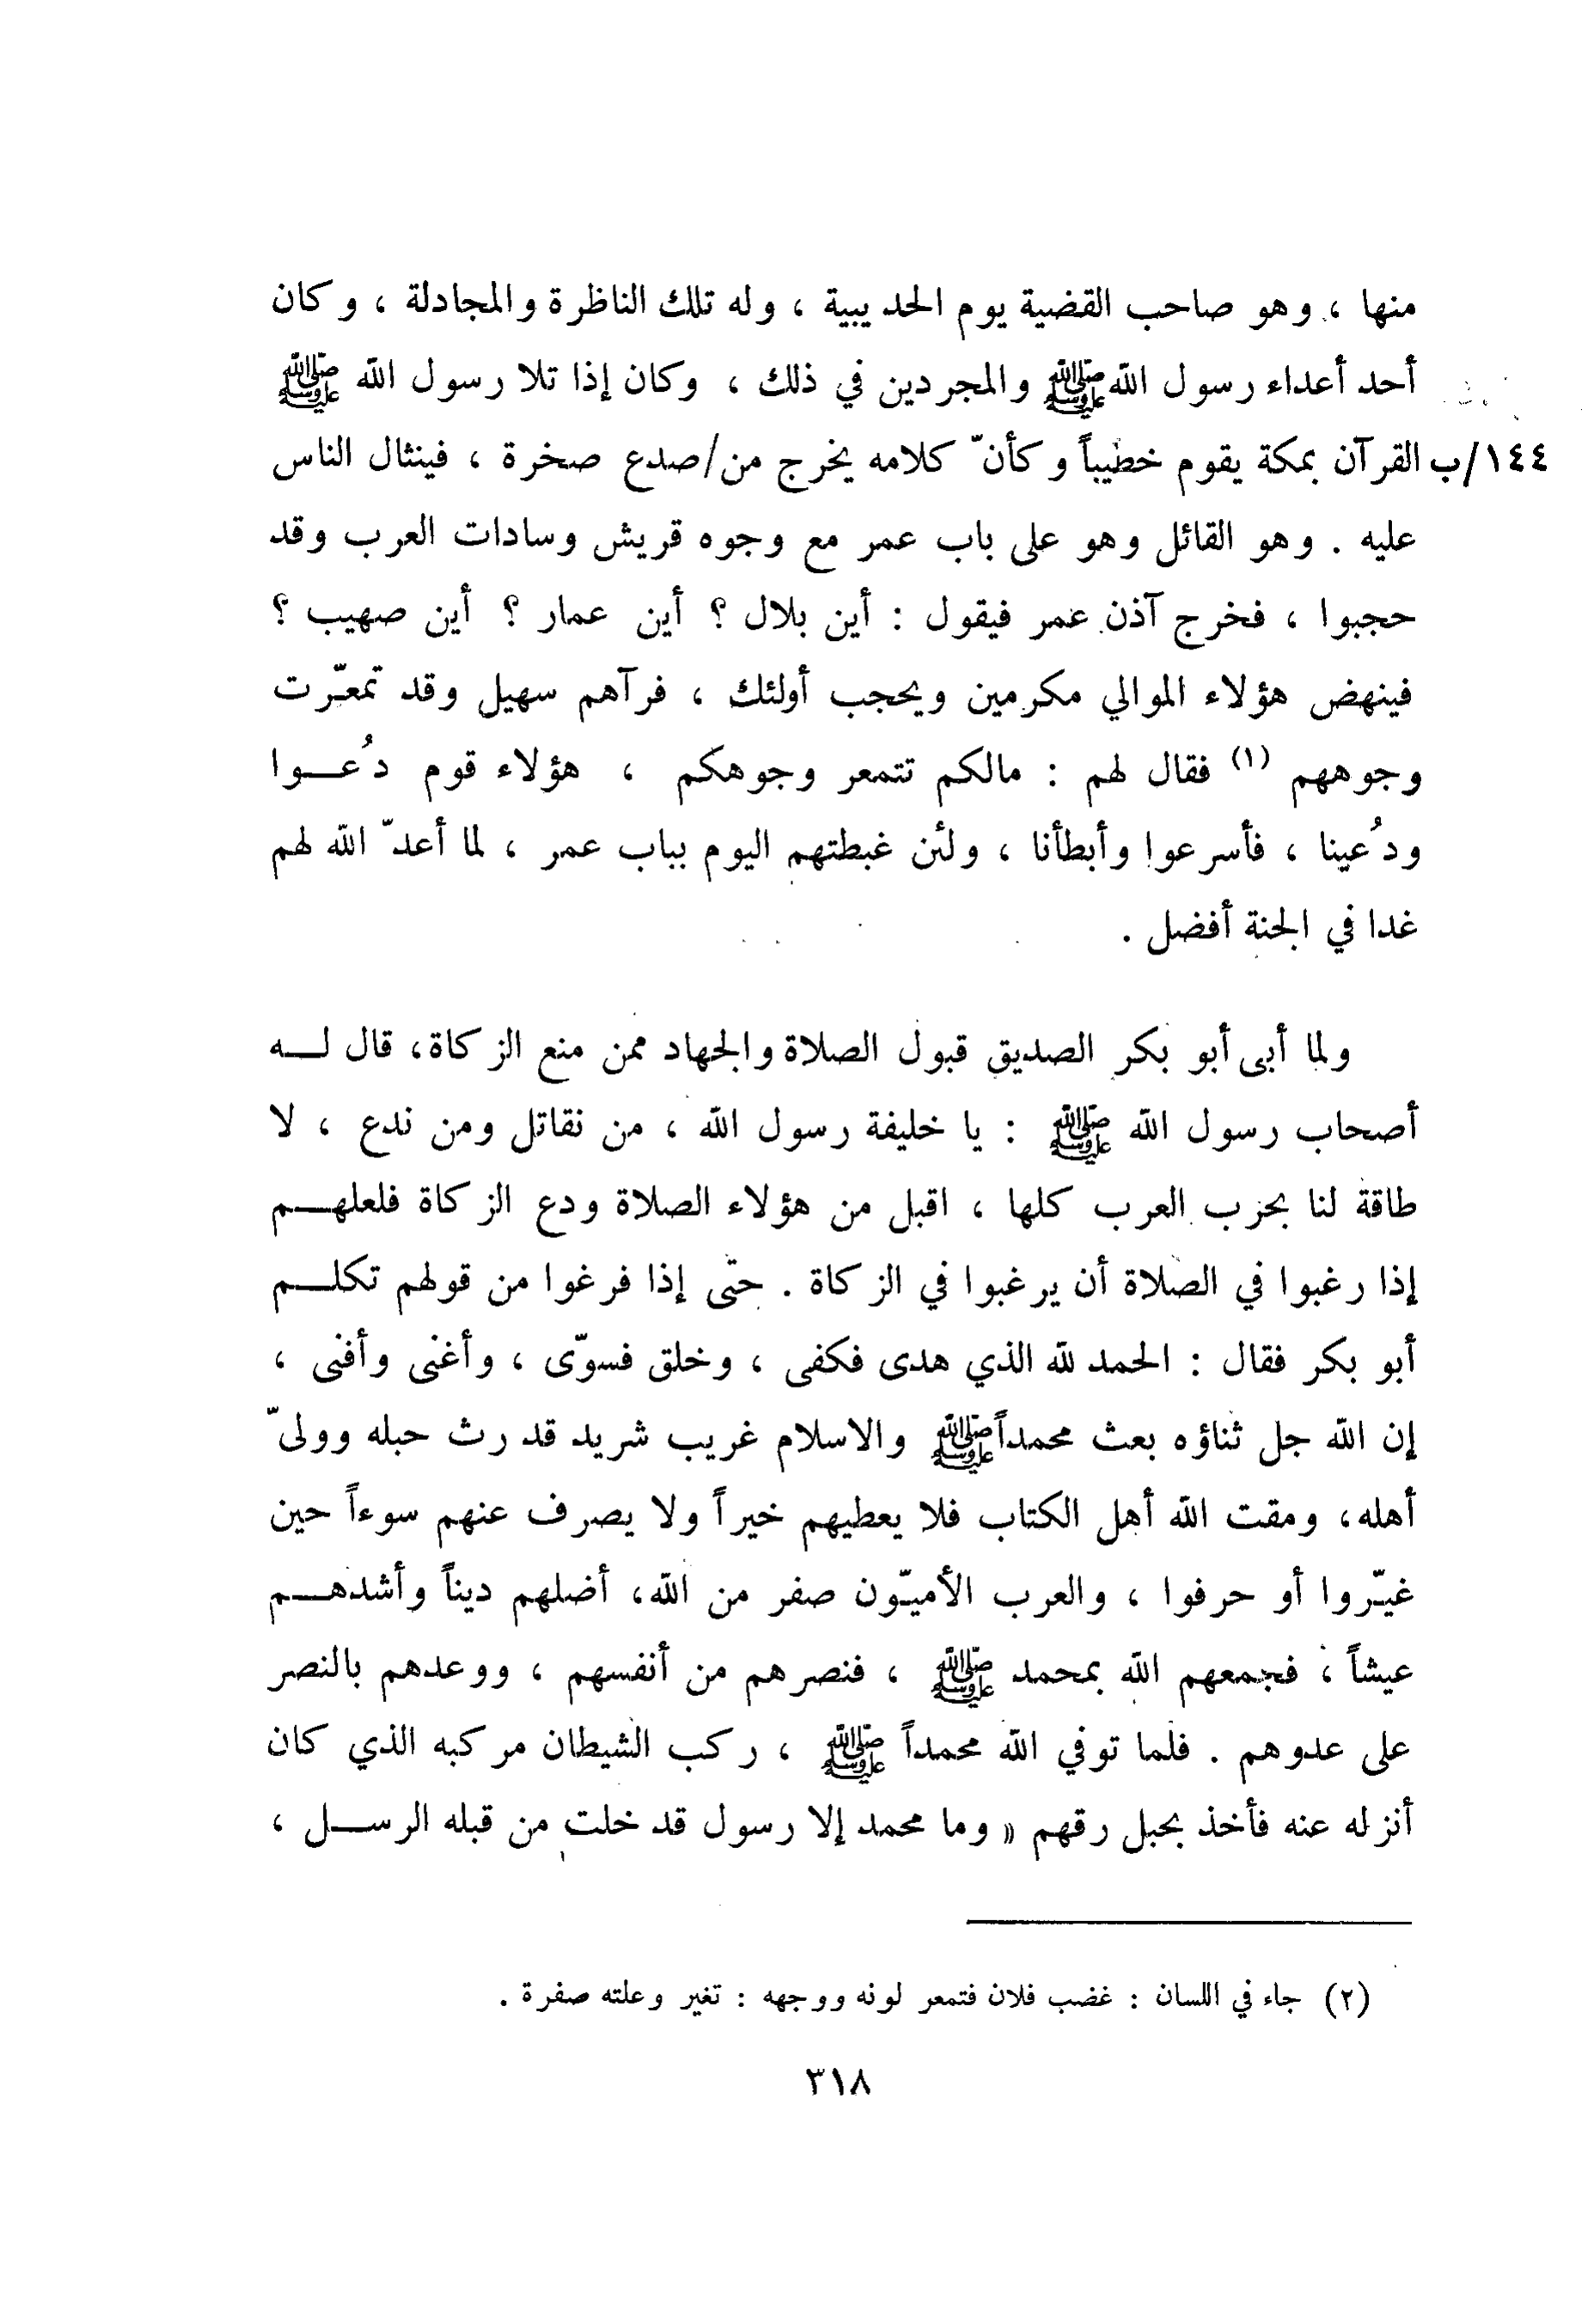 منها ، وهو صاحب القضية يوم الحديبية ، وله تلك الناظرة والمجادلة ، وكان
أحد أعداء رسول الله ﷺ والمجردين في ذلك ، وكان إذا تلا رسول الله ﷺ
١٤٤/ب القرآن بمكة يقوم خطيباً وكأنّ كلامه يخرج من/صدع صخرة ، فينثال الناس
عليه . وهو القائل وهو على باب عمر مع وجوه قريش وسادات العرب وقد
حجبوا ، فخرج آذن عمر فيقول : أين بلال ؟ أين عمار ؟ أين صهيب ؟
فينهض هؤلاء الموالي مكرمين ويحجب أولئك ، فرآهم سهيل وقد تمعّرت
وجوههم (١) فقال لهم : مالكم تتمعر وجوهكم ، هؤلاء قوم دُعـوا
ودُعينا ، فأسرعوا وأبطأنا ، ولئن غبطتهم اليوم بباب عمر ، لما أعدّ الله لهم
غدا في الجنة أفضل .
ولما أبى أبو بكر الصديق قبول الصلاة والجهاد ممن منع الزكاة، قال لـه
أصحاب رسول الله ﷺ : يا خليفة رسول الله ، من نقاتل ومن ندع ، لا
طاقة لنا بحرب العرب كلها ، اقبل من هؤلاء الصلاة ودع الزكاة فلعلهـم
إذا رغبوا في الصلاة أن يرغبوا في الزكاة . حتى إذا فرغوا من قولهم تكلـم
أبو بكر فقال : الحمد لله الذي هدى فكفى ، وخلق فسوّى ، وأغنى وأفنى ،
إن الله جل ثناؤه بعث محمداً ﷺ والاسلام غريب شريد قد رث حبله وولىّ
أهله، ومقت الله أهل الكتاب فلا يعطيهم خيراً ولا يصرف عنهم سوءاً حين
غيّروا أو حرفوا ، والعرب الأميّون صفر من الله، أضلهم ديناً وأشدهـم
عيشاً ، فجمعهم الله بمحمد ﷺ ، فنصرهم من أنفسهم ، ووعدهم بالنصر
على عدوهم . فلما توفي الله محمداً ﷺ ، ركب الشيطان مركبه الذي كان
أنزله عنه فأخذ بحبل رقهم « وما محمد إلا رسول قد خلت من قبله الرسـل ،
(٢) جاء في اللسان : غضب فلان فتمعر لونه ووجهه : تغير وعلته صفرة .
٣١٨